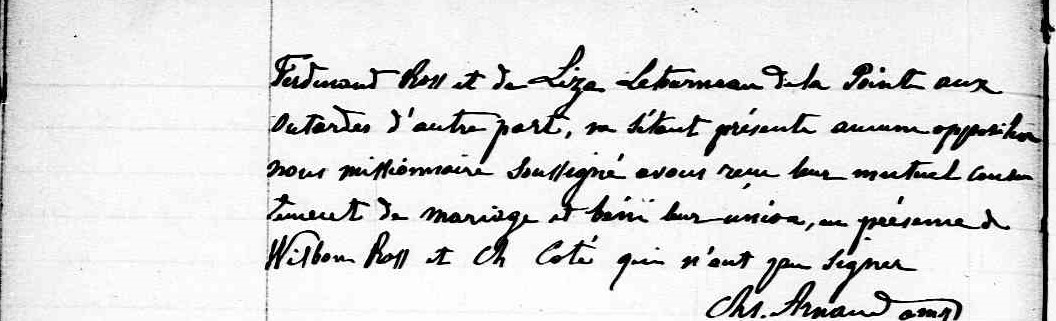 Ferdinand Ross et de Liza Letourneau de la Pointe aux
Outardes d'autre part, ne s'étant présenté aucune opposition
nous missionnaire soussigné avons reçu leur mutuel consen
tement de mariage et béni leur union, en présence de
Wilbon Ross et Ch Coté qui n'ont pu signer
Chs. Arnaud omi